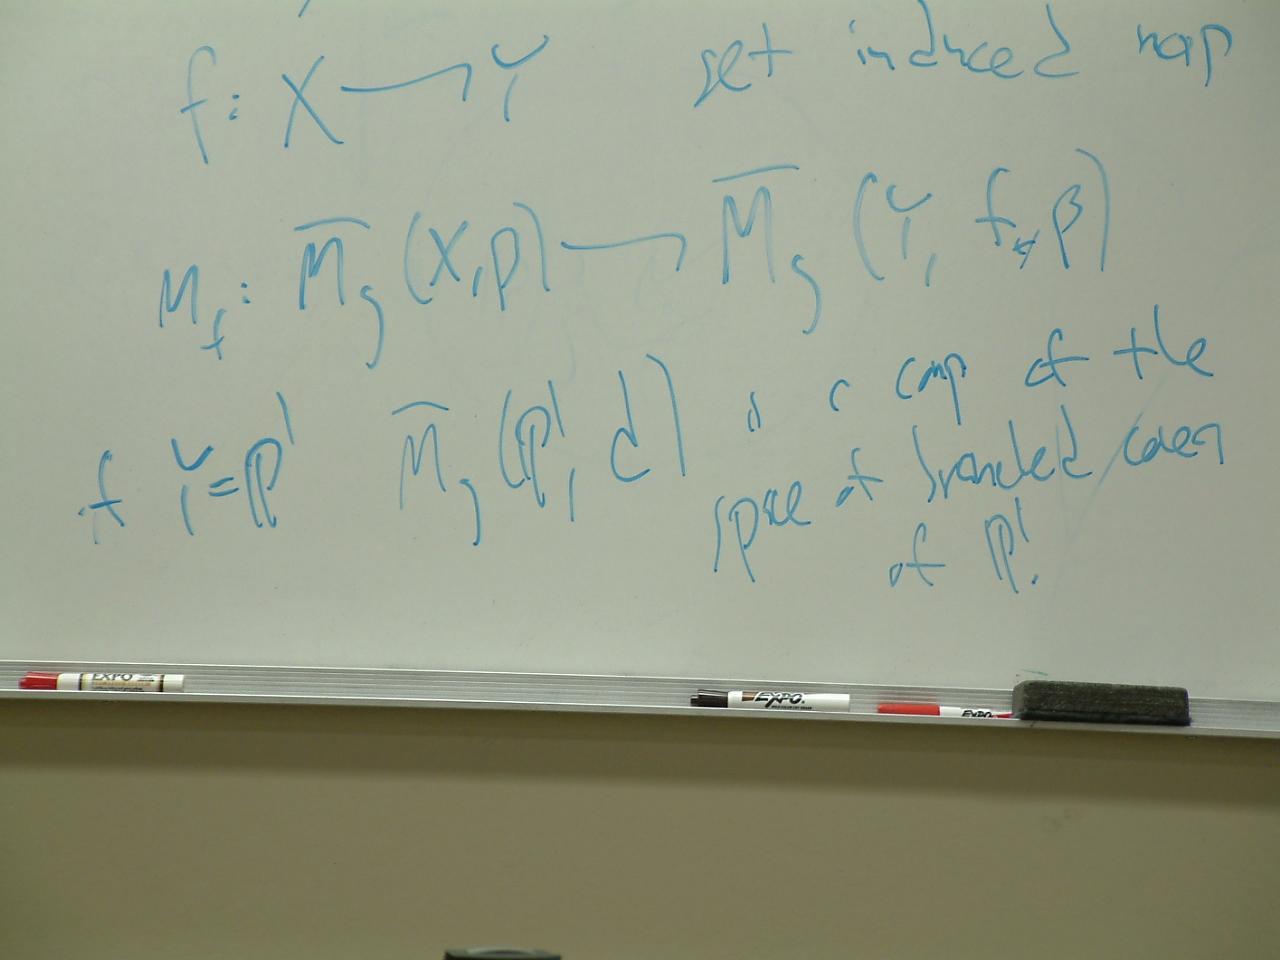 f: X → Y get induced map
M_f: M̅_g (X, β) → M̅_g (Y, f_* β)
if Y = ℙ¹ M̅_g (ℙ¹, d) is a comp of the
space of branched covers
of ℙ¹.
EXPO EXPO EXPO